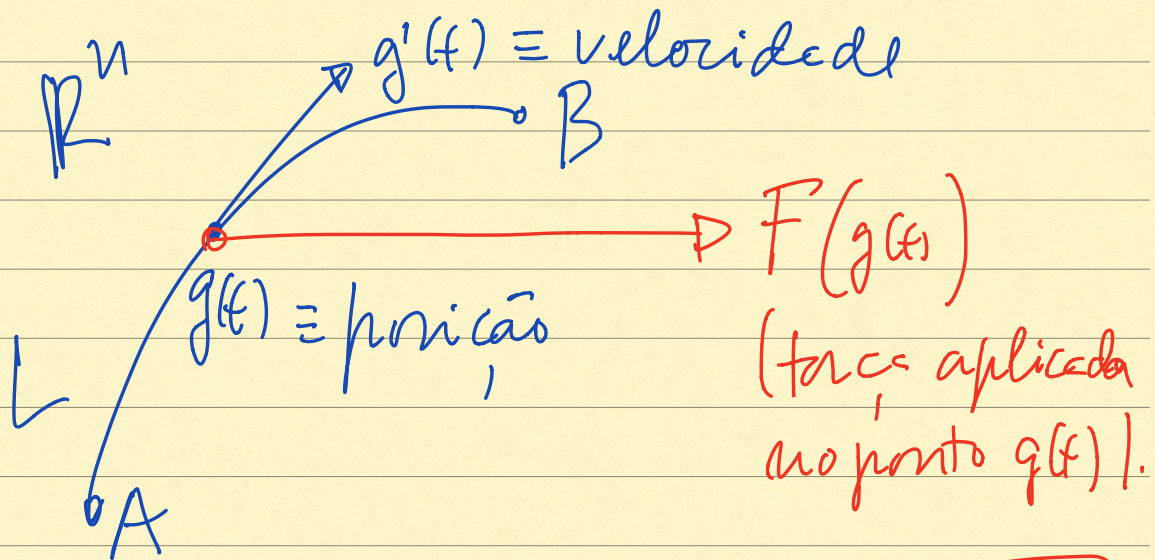 ℝⁿ
g'(t) ≡ velocidade
B
F(g(t))
g(t) ≡ posição
L
(força aplicada
no ponto g(t)).
A